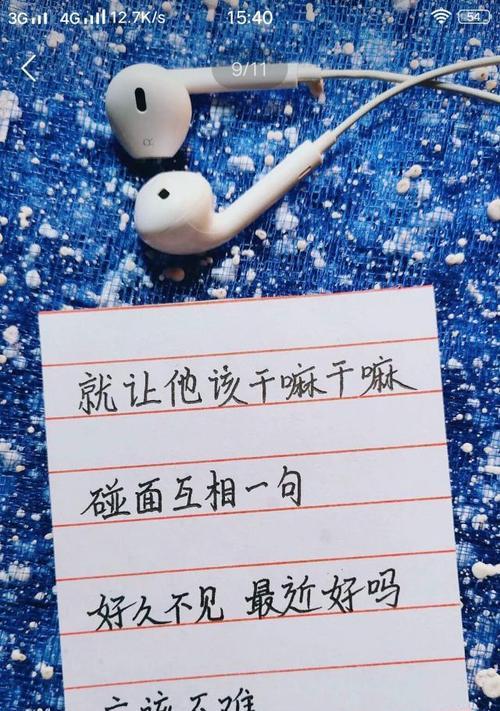 3G 4G 12.7K/s 15:40 54
9/11
就让他该干嘛干嘛
碰面互相一句
好久不见 最近好吗
应该不难